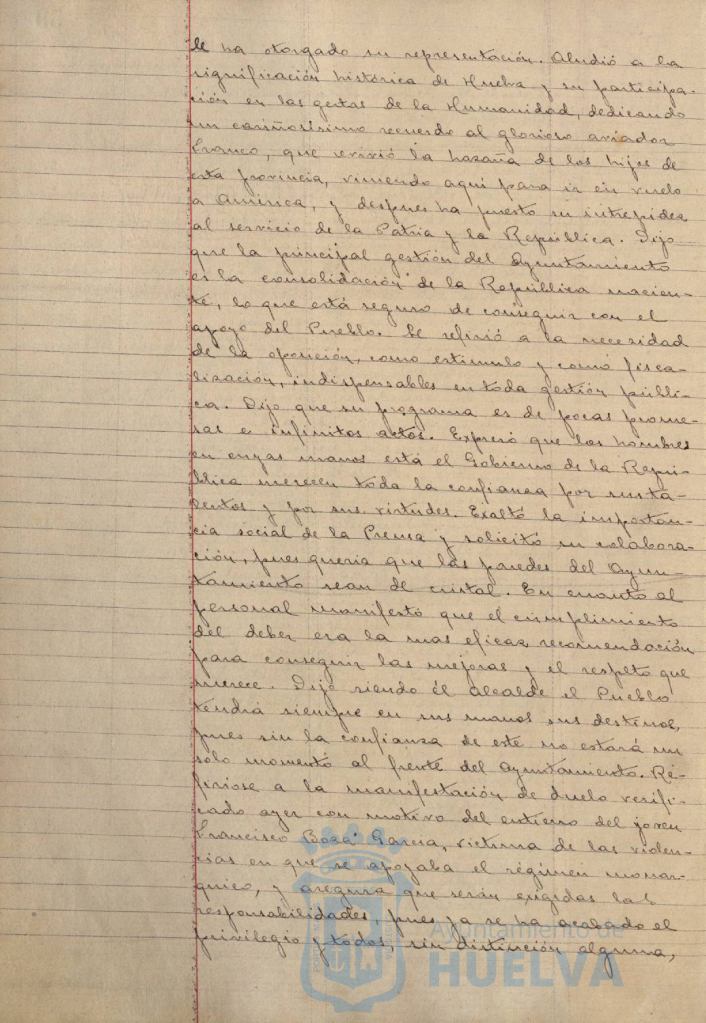 le ha otorgado su representación. Aludió a la
significación histórica de Huelva y su participa-
ción en las gestas de la Humanidad, dedicando
un cariñosísimo recuerdo al glorioso aviador
Franco, que revivió la hazaña de los hijos de
esta provincia, viniendo aquí para ir en vuelo
a América, y despues ha puesto su intrepidez
al servicio de la Patria y la República. Dijo
que la principal gestión del Ayuntamiento
es la consolidación de la República nacien-
te, lo que está seguro de conseguir con el
apoyo del Pueblo. Se refirió a la necesidad
de la oposición, como estimulo y como fisca-
lización, indispensables en toda gestión públi-
ca. Dijo que su programa es de pocas prome-
sas e infinitos actos. Expresó que los hombres
en cuyas manos está el Gobierno de la Repú-
blica merecen toda la confianza por sus ta-
lentos y por sus virtudes. Exaltó la importan-
cia social de la Prensa y solicitó su colabora-
ción, pues queria que las paredes del Ayun-
tamiento sean de cristal. En cuanto al
personal manifestó que el cumplimiento
del deber era la mas eficaz recomendación
para conseguir las mejoras y el respeto que
merece. Dijo siendo él alcalde el Pueblo
tendrá siempre en sus manos sus destinos,
pues sin la confianza de este no estará un
solo momento al frente del Ayuntamiento. Re-
firiose a la manifestación de duelo verifi-
cado ayer con motivo del entierro del joven
Francisco Boza Garcia, victima de las violen-
cias en que se apoyaba el régimen monar-
quico, y asegura que serán exigidas las
responsabilidades, pues ya se ha acabado el
privilegio y todos, sin distinción alguna,
Ayuntamiento de
HUELVA